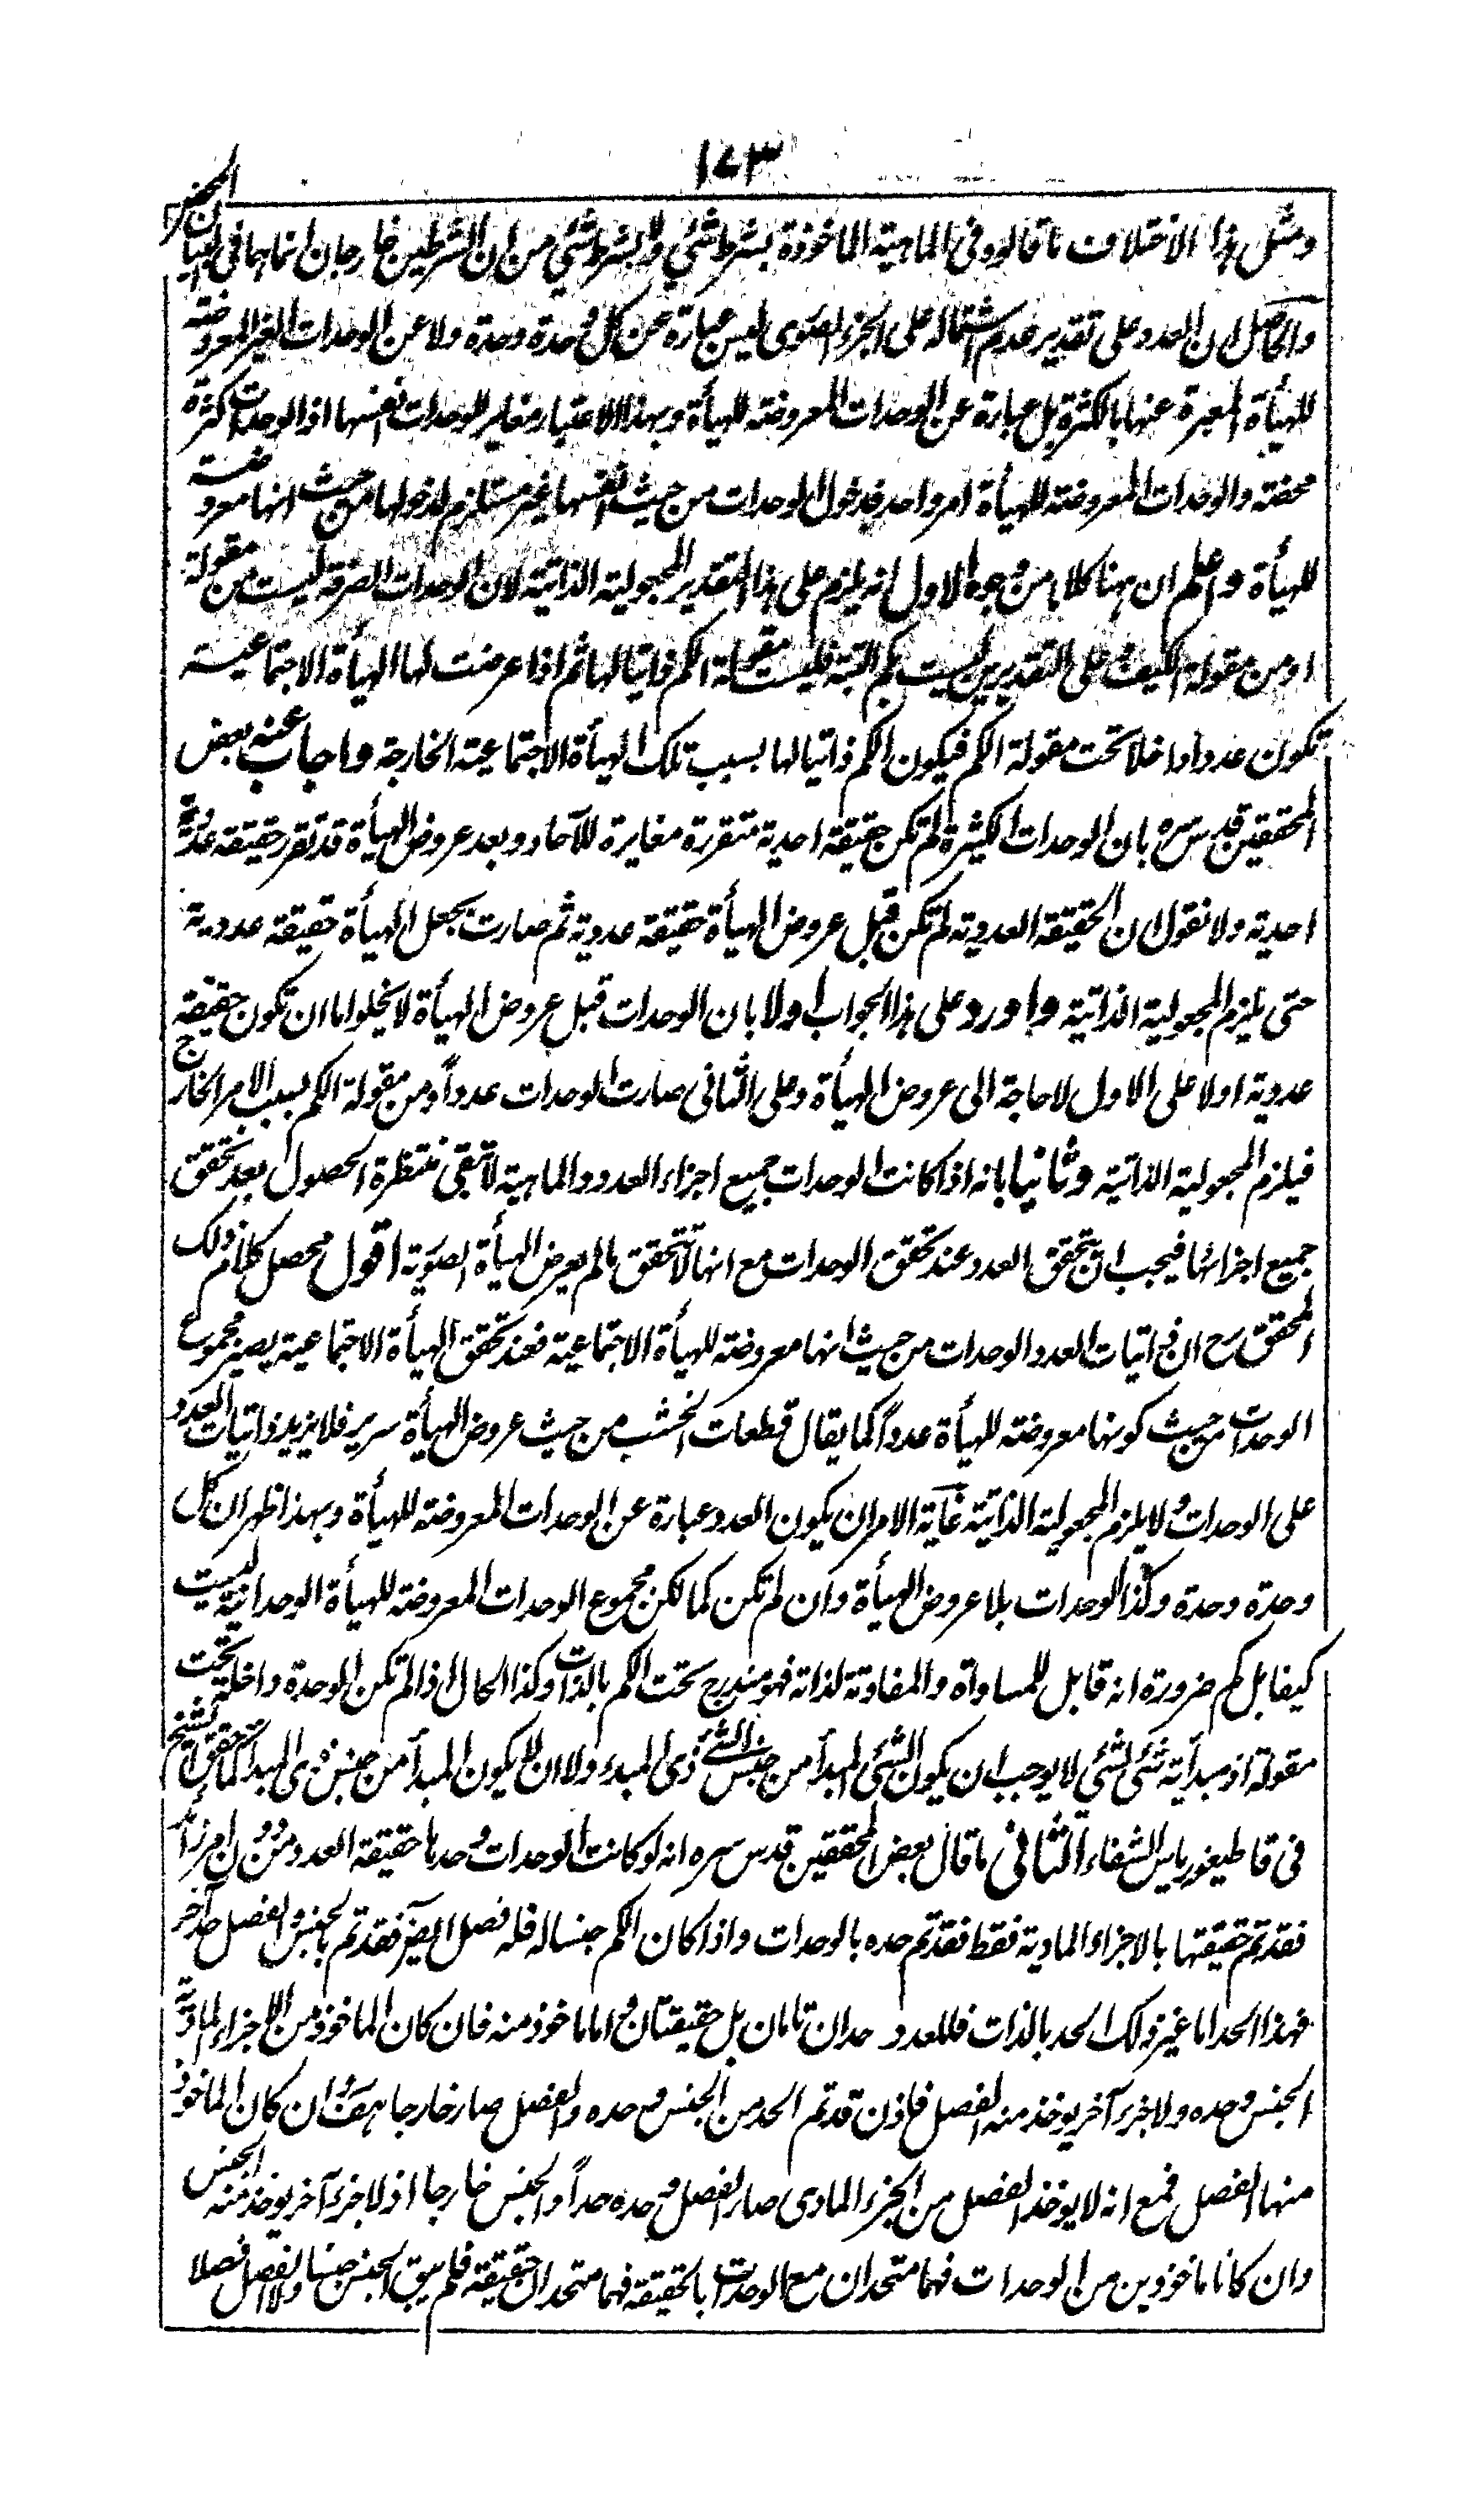 ١٧٣
ومثل هذا الاختلاف ما قالوه فى الماهية الماخوذة بشرط شئي ولا بشرط شئي من ان الشرطين خارجان انما هما فى
والحاصل ان العدد على تقدير عدم اشتماله على الجزء الصورى ليس عبارة عن كل وحدة وحدة ولا عن الوحدات الغير المعروضة
للهيأة المعبرة عنها بالكثرة بل عبارة عن الوحدات المعروضة للهيأة وبهذا الاعتبار مغاير للوحدات انفسها اذ الوحدات كثرة
محضة والوحدات المعروضة للهيأة امر واحد فدخول الوحدات من حيث انفسها غير مستلزم لدخولها من حيث انها معروضة
للهيأة واعلم ان ههنا كلاما من وجوه الاول انه يلزم على هذا التقدير المجعولية الذاتية لان الوحدات الصرفة ليست من مقولة
او من مقولة الكيف على التقديرين ليست بكم البتة فليست مقولة الكم ذاتيا لها ثم اذا عرضت لها الهيأة الاجتماعية
تكون عددا داخلا تحت مقولة الكم فيكون الكم ذاتيا لها بسبب تلك الهيأة الاجتماعية الخارجة واجاب عنه بعض
المحققين قدس سره بان الوحدات الكثيرة لم تكن حقيقة احدية متقررة مغايرة للآحاد وبعد عروض الهيأة قد تقرر حقيقة عددية
احدية ولا نقول ان الحقيقة العددية لم تكن قبل عروض الهيأة حقيقة عددية ثم صارت بجعل الهيأة حقيقة عددية
حتى يلزم المجعولية الذاتية واورد على هذا الجواب اولا بان الوحدات قبل عروض الهيأة لا يخلو اما ان تكون حقيقة
عددية اولا على الاول لا حاجة الى عروض الهيأة وعلى الثانى صارت الوحدات عدداً ومن مقولة الكم بسبب الامر الخارج
فيلزم المجعولية الذاتية وثانيا بانه اذا كانت الوحدات جميع اجزاء العدد والماهية لا تبقى منتظرة الحصول بعد تحقق
جميع اجزائها فيجب ان يتحقق العدد عند تحقق الوحدات مع انها لا تتحقق ما لم يعرض الهيأة الصورية اقول محصل كلام ذلك
المحقق رح ان ذاتيات العدد الوحدات من حيث انها معروضة للهيأة الاجتماعية فعند تحقق الهيأة الاجتماعية يصير مجموع
الوحدات من حيث كونها معروضة للهيأة عدداً كما يقال قطعات الخشب من حيث عروض الهيأة سرير فلا يزيد ذاتيات العدد
على الوحدات ولا يلزم المجعولية الذاتية غاية الامر ان يكون العدد عبارة عن الوحدات المعروضة للهيأة وبهذا ظهر ان كل
وحدة وحدة وكذا الوحدات بلا عروض الهيأة وان لم تكن كما لكن مجموع الوحدات المعروضة للهيأة الوحدانية ليست
كيفا بل كم ضرورة انه قابل للمساواة والمفاوتة لذاته فهو مندرج تحت الكم بالذات وكذا الحال اذا لم تكن الوحدة داخلة تحت
مقولة اذ مبدأية شئ لشئي لا يوجب ان يكون الشئي المبدأ من جنس الشئ ذى المبدء ولا ان لا يكون المبدأ من جنس ذى المبدأ كما حقق الشيخ
فى قاطيغورياس الشفاء الثانى ما قال بعض المحققين قدس سره انه لو كانت الوحدات وحدها حقيقة العدد من دون امر زائد
فقد تم حقيقتها بالاجزاء المادية فقط فقد تم حده بالوحدات واذا كان الكم جنسا له فله فصل ايضا فقد تم بالجنس والفصل حد آخر
فهذا الحد اما غير ذلك الحد بالذات فللعدد حدان تامان بل حقيقتان واما ماخوذ منه فان كان الماخوذ من الاجزاء المادية
الجنس وحده ولا جزء آخر يوخذ منه الفصل فاذن قد تم الحد من الجنس وحده والفصل صار خارجا هف وان كان الماخوذ
منها الفصل فمع انه لا يوخذ الفصل من الجزء المادى صار الفصل وحده حداً والجنس خارجا اذ لا جزء آخر يوخذ منه الجنس
وان كانا ماخوذين من الوحدات فهما متحدان مع الوحدات بالحقيقة فهما متحدان حقيقة فلم يبق الجنس جنسا ولا الفصل فصلا